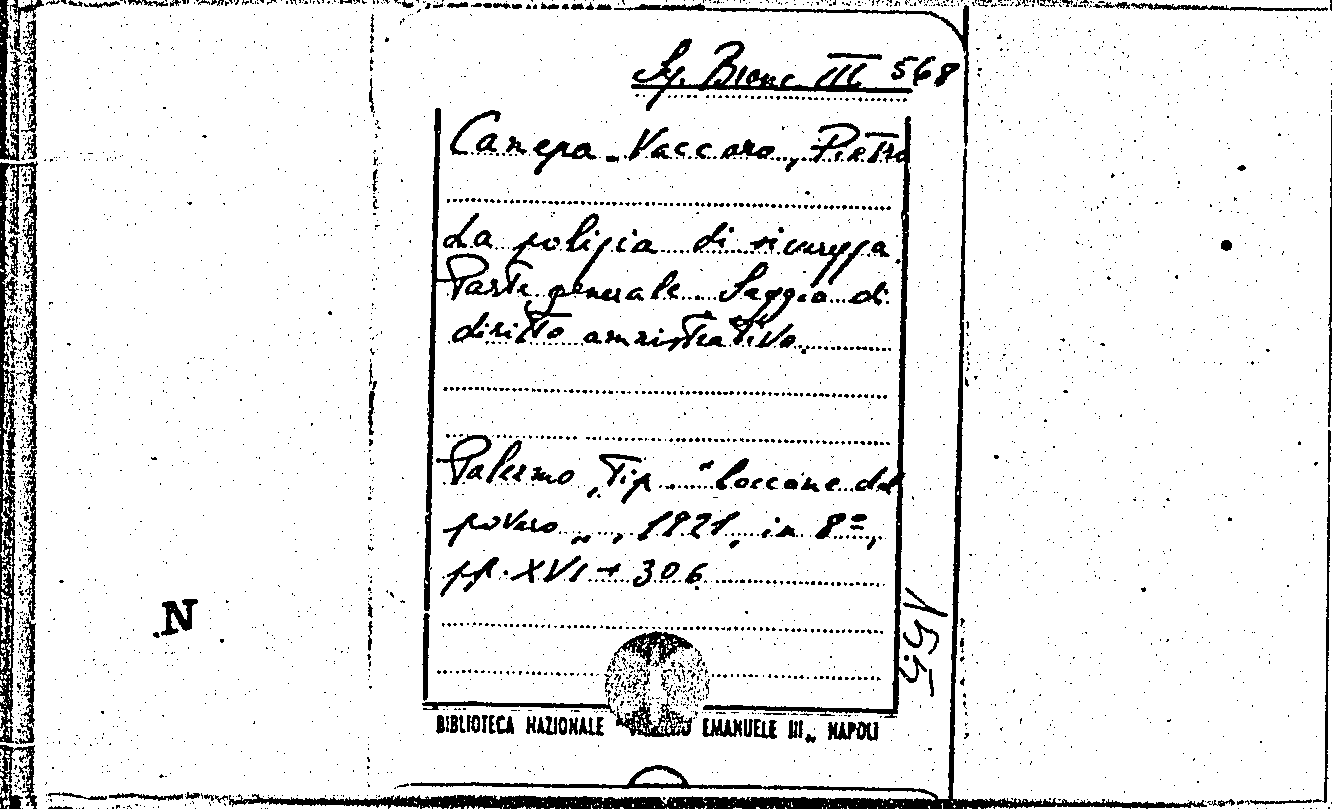 Sg. Bianc III 568
Canepa-Vaccaro, Pietro
La polizia di sicurezza.
Parte generale. Saggio di
diritto amnistrativo.
Palermo, Tip. "Boccone del
povero„, 1921, in 8º,
pp. XVI + 306
.N
BIBLIOTECA NAZIONALE " EMANUELE III„ NAPOLI